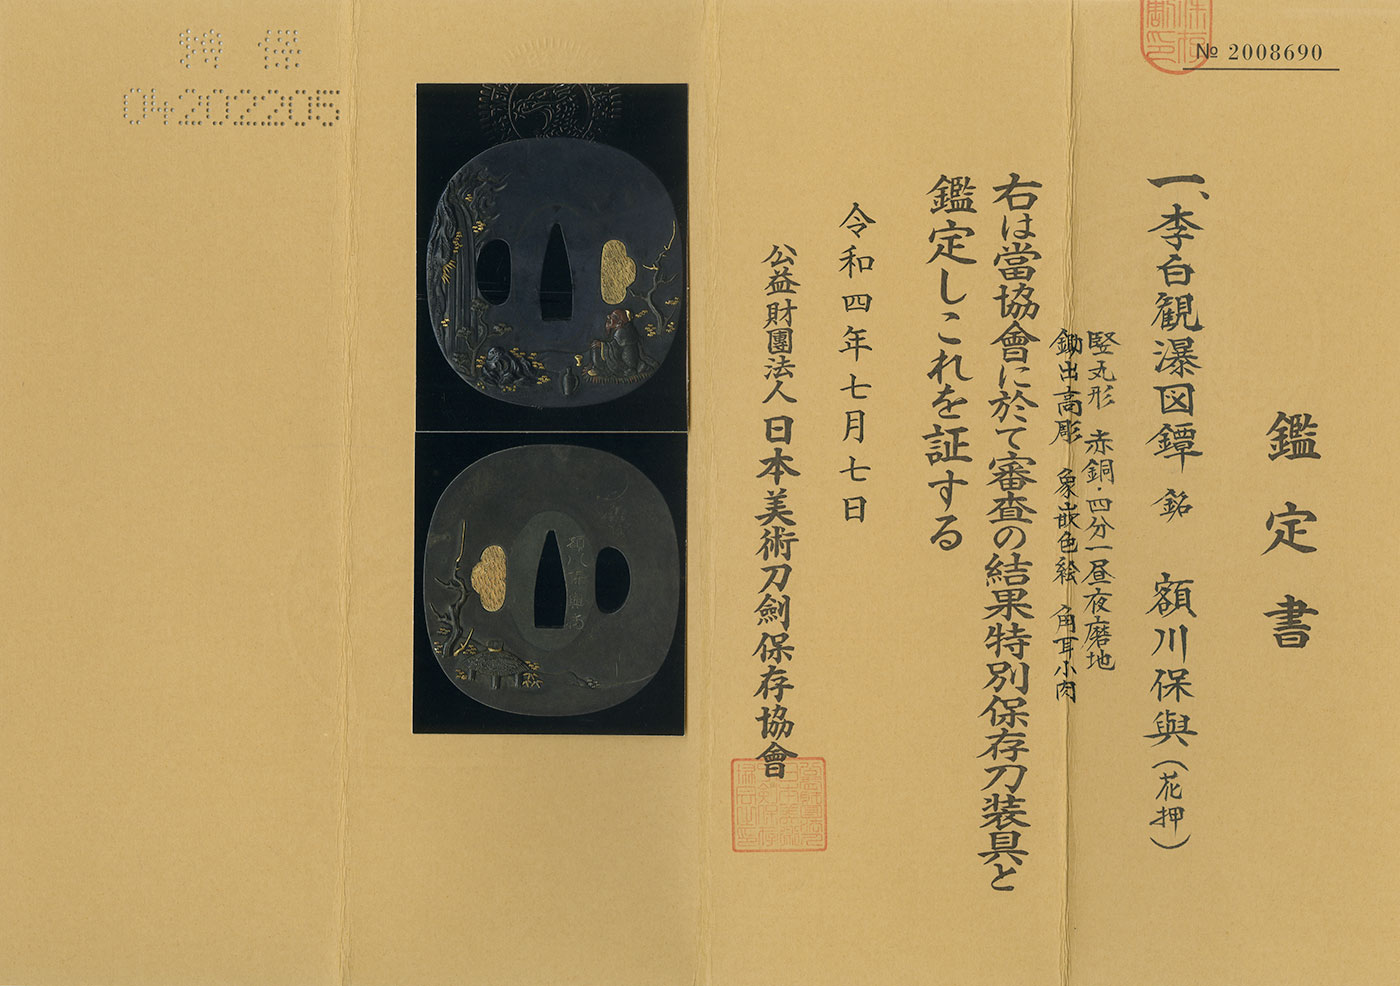 № 2008690
鑑定書
一、李白観瀑図鐔 銘 額川保與(花押)
竪丸形 赤銅・四分一昼夜磨地
鋤出高彫 象嵌色絵 角耳小肉
右は當協會に於て審査の結果特別保存刀装具と
鑑定しこれを証する
令和四年七月七日
公益財團法人 日本美術刀劍保存協會
特保
04202205